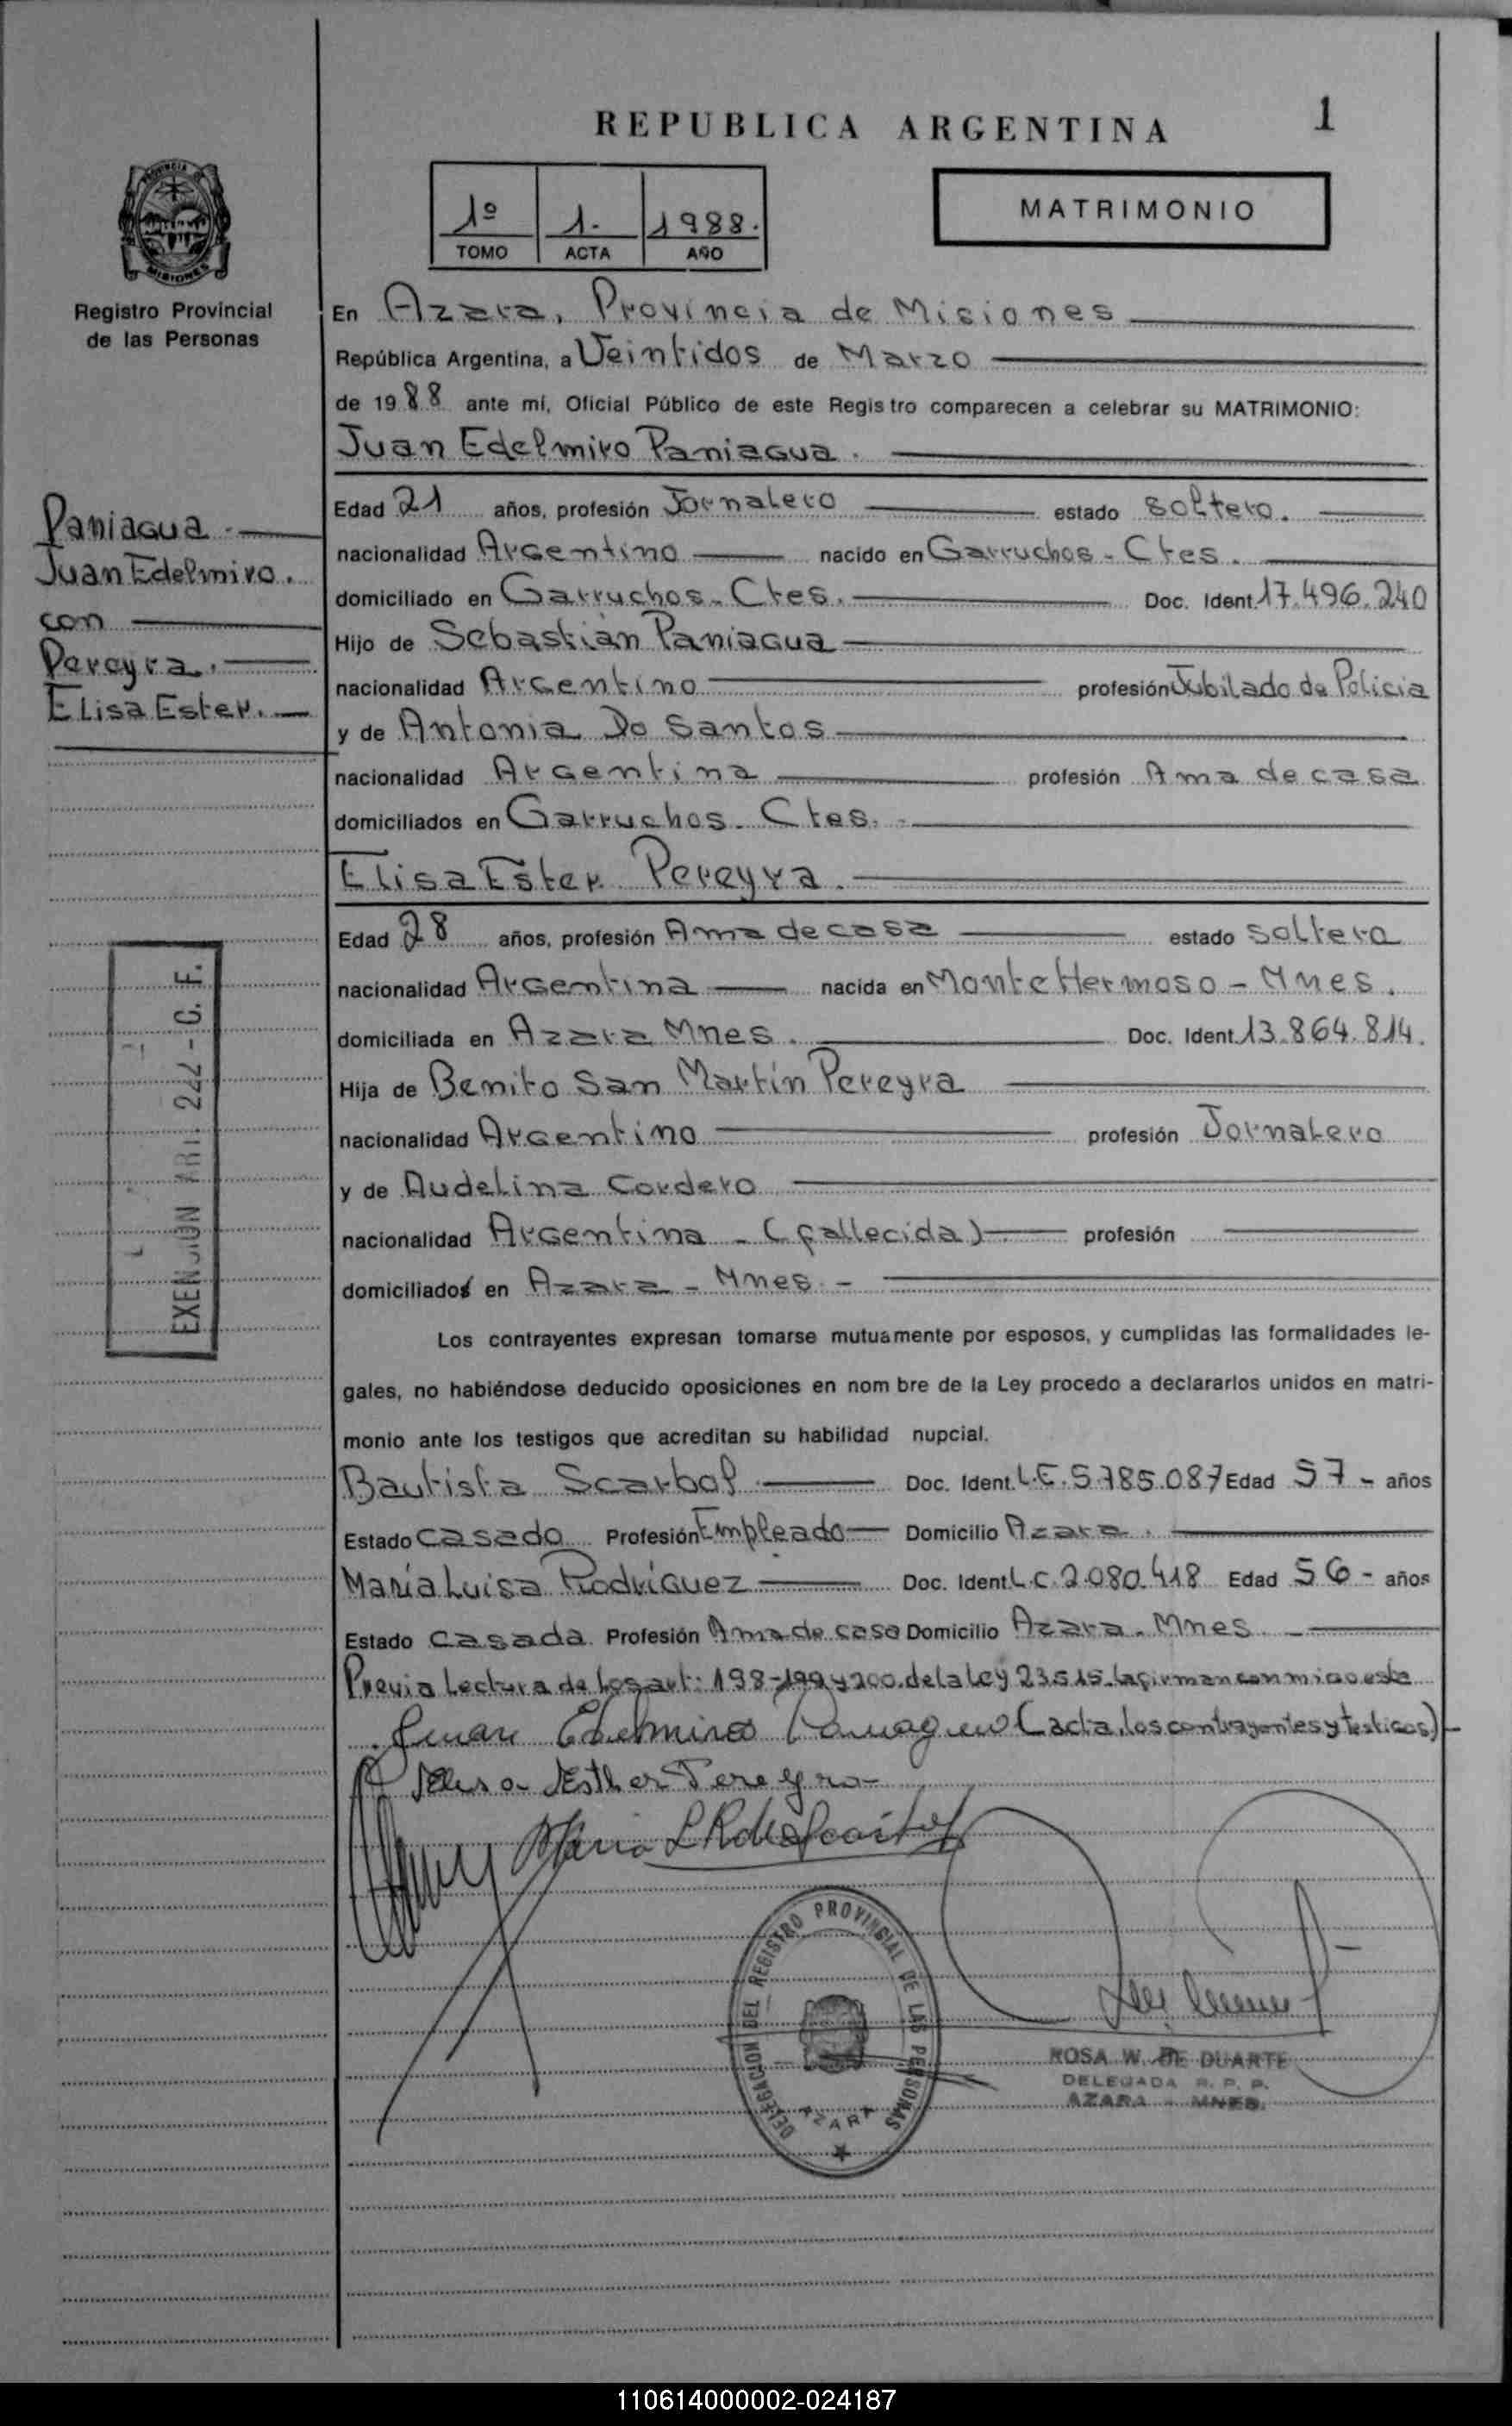 REPUBLICA ARGENTINA
1
PROVINCIA
MISIONES
Registro Provincial
de las Personas
1º 1. 1988.
TOMO ACTA AÑO
MATRIMONIO
En Azara, Provincia de Misiones
República Argentina, a Veintidos de Marzo
de 1988 ante mí, Oficial Público de este Regis tro comparecen a celebrar su MATRIMONIO:
Juan Edelmiro Paniagua.
Paniagua.
Juan Edelmiro.
con
Pereyra.
Elisa Ester.
Edad 21 años, profesión Jornalero estado soltero.
nacionalidad Argentino nacido en Garruchos - Ctes.
domiciliado en Garruchos - Ctes. Doc. Ident. 17.496.240
Hijo de Sebastián Paniagua
nacionalidad Argentino profesión Jubilado de Policia
y de Antonia Do Santos
nacionalidad Argentina profesión Ama de casa
domiciliados en Garruchos - Ctes.
Elisa Ester Pereyra.
Edad 28 años, profesión Ama de casa estado soltera
nacionalidad Argentina nacida en Monte Hermoso - Mnes.
domiciliada en Azara Mnes. Doc. Ident. 13.864.814.
Hija de Benito San Martín Pereyra
nacionalidad Argentino profesión Jornalero
y de Audelina Cordero
nacionalidad Argentina - (fallecida) profesión
domiciliados en Azara - Mnes. -
EXENCION ART. 222 - C. F.
Los contrayentes expresan tomarse mutuamente por esposos, y cumplidas las formalidades le-
gales, no habiéndose deducido oposiciones en nom bre de la Ley procedo a declararlos unidos en matri-
monio ante los testigos que acreditan su habilidad nupcial.
Bautista Scarbol Doc. Ident. L.E. 5.785.087 Edad 57 - años
Estado casado Profesión Empleado Domicilio Azara.
María Luisa Rodríguez Doc. Ident. L.C. 2.080.418 Edad 56 - años
Estado casada Profesión Ama de casa Domicilio Azara - Mnes.
Previa Lectura de los art: 198-199 y 200 de la Ley 23.515. la firman conmigo esta
Juan Edelmiro Paniagua (acta, los contrayentes y testigos)
Elisa Esther Pereyra
Maria L R de Scarbol
DELEGACION DEL REGISTRO PROVINCIAL DE LAS PERSONAS
AZARA
ROSA W. DE DUARTE
DELEGADA R. P. P.
AZARA - MNES.
110614000002-024187